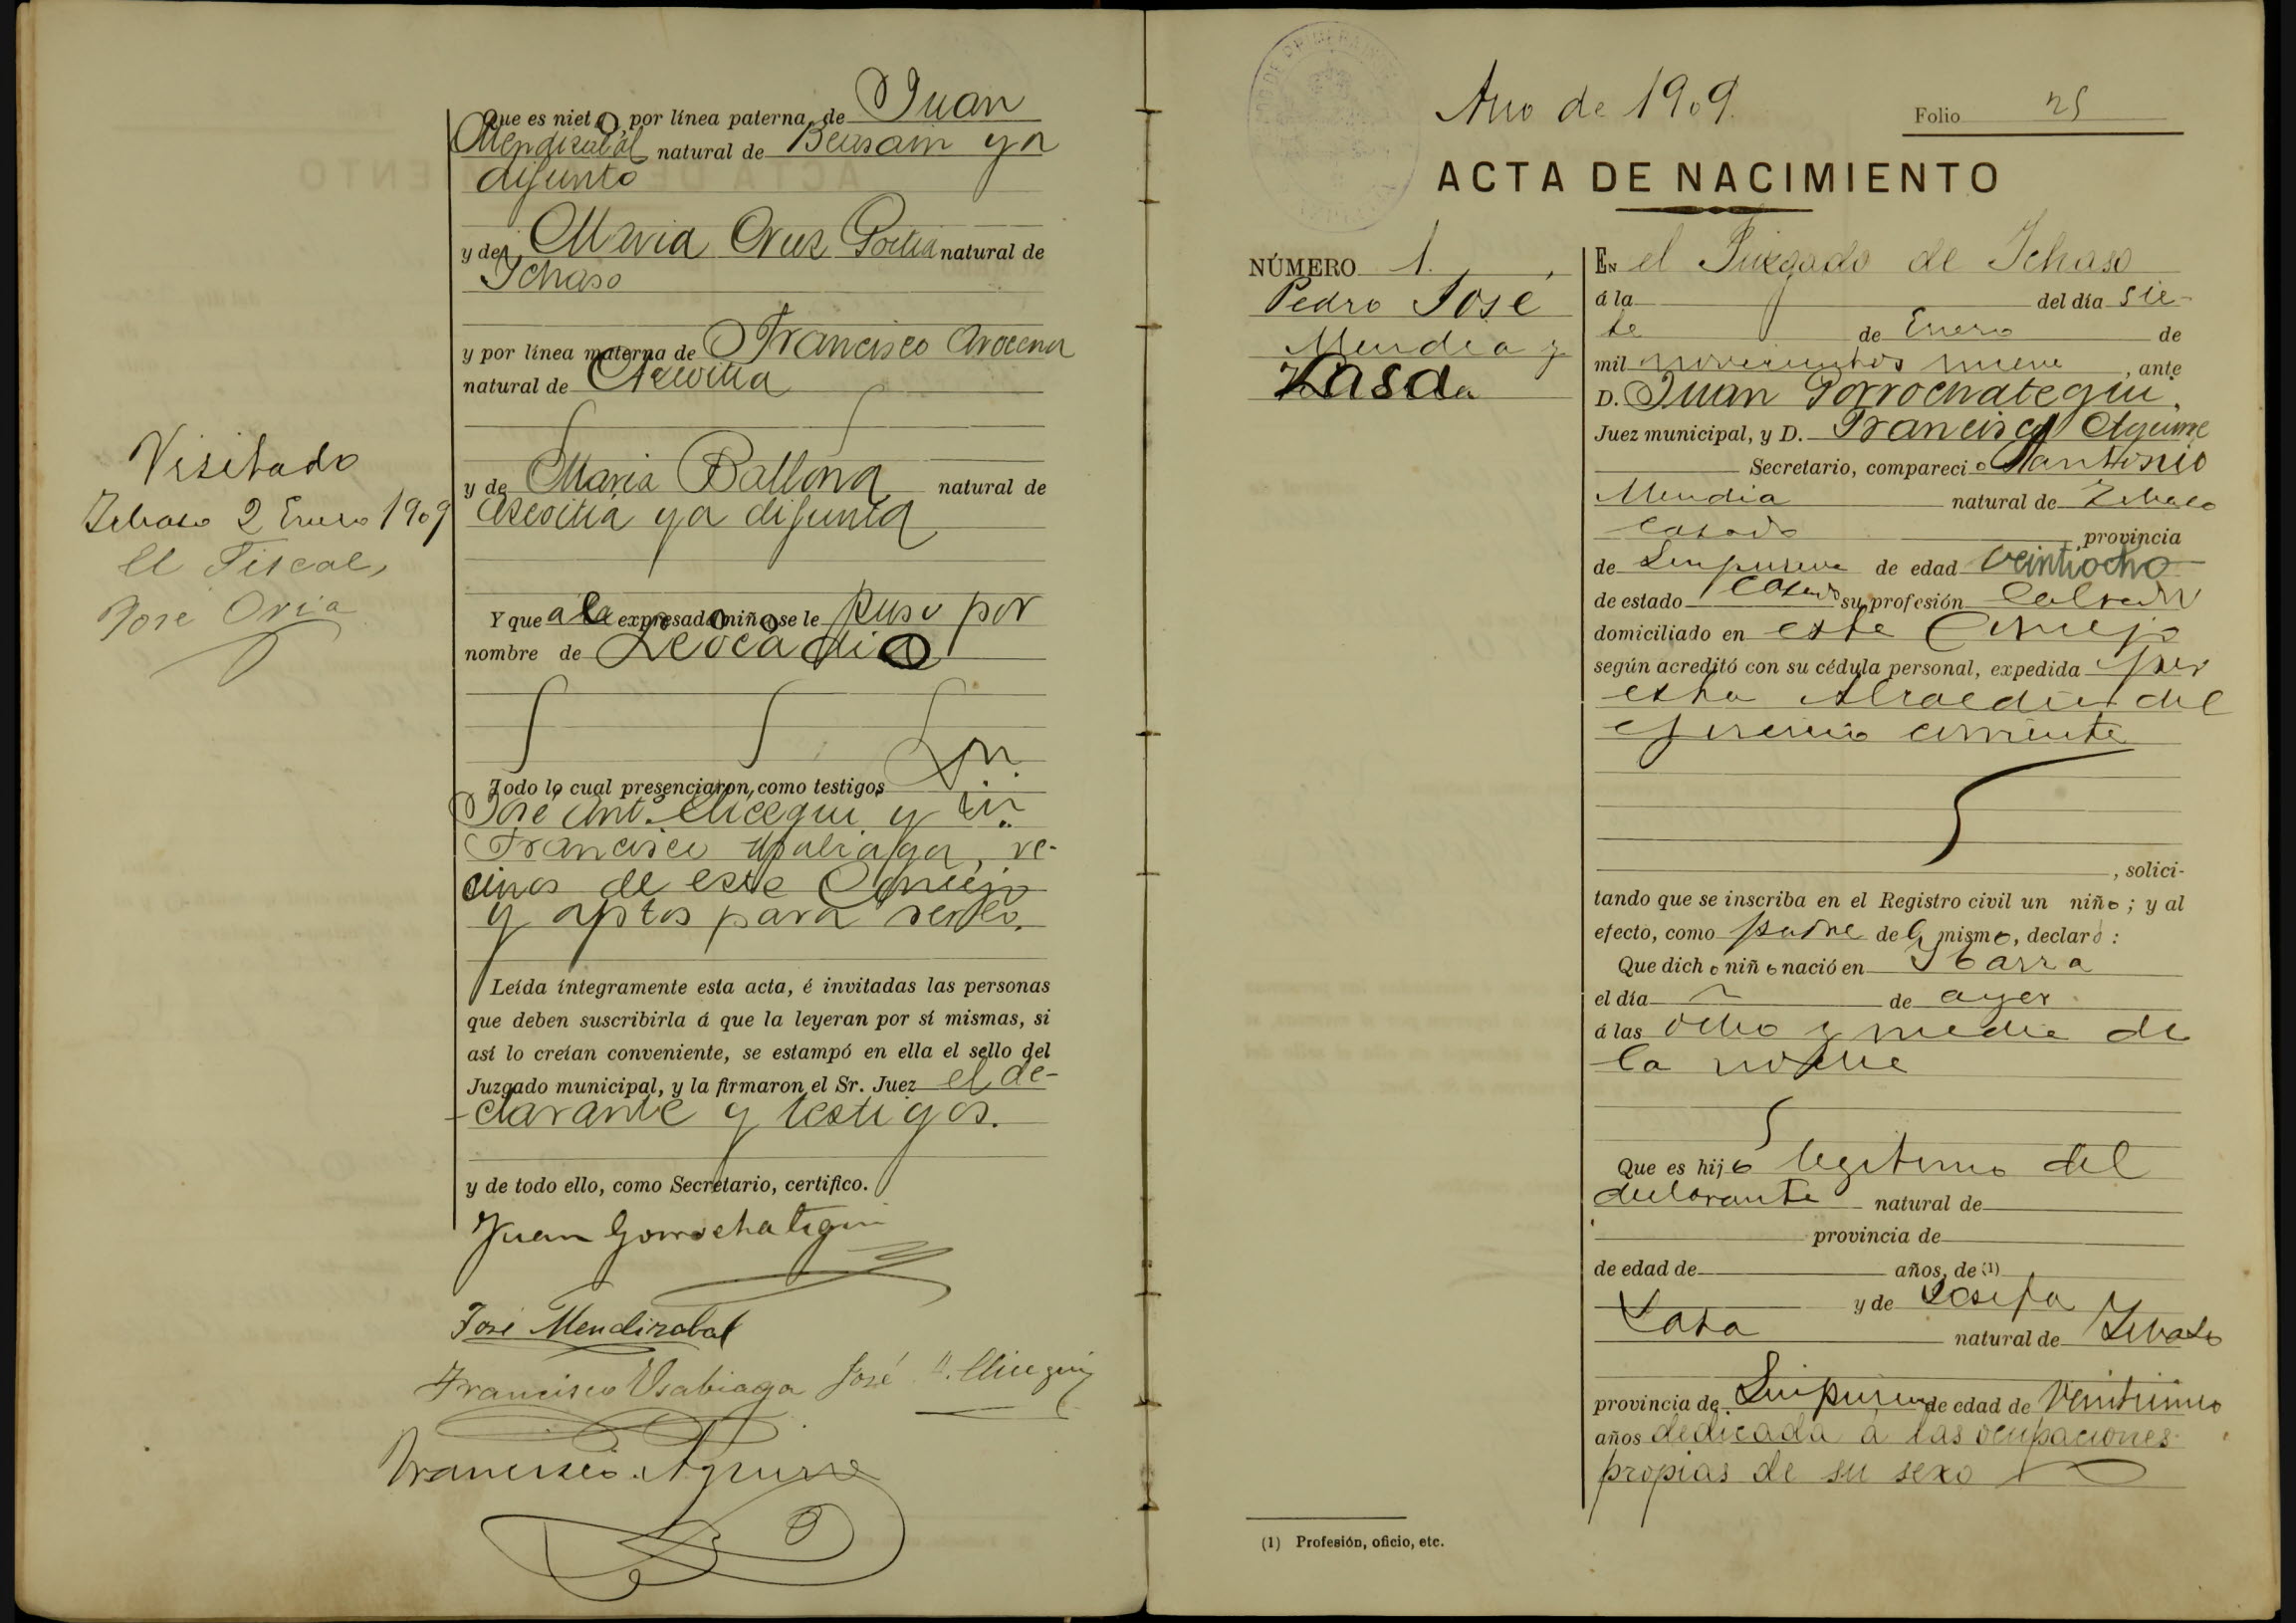 Que es nieto, por línea paterna, de Juan
Mendizabal natural de Beasain ya
difunto
y de Maria Cruz Goitia natural de
Ichaso
y por línea materna de Francisco Arocena
natural de Azcoitia
y de Maria Ballona natural de
Azcoitia ya difunta
Y que a la expresado niño se le puso por
nombre de Leocadio
Todo lo cual presenciaron, como testigos Dn.
José Ant. Elicegui y Dn.
Francisco Usabiaga, ve-
cinos de este Concejo
y aptos para serlo.
Leída íntegramente esta acta, é invitadas las personas
que deben suscribirla á que la leyeran por sí mismas, si
así lo creían conveniente, se estampó en ella el sello del
Juzgado municipal, y la firmaron el Sr. Juez el de-
-clarante y testigos.
y de todo ello, como Secretario, certifico.
Juan Gorrochategui
José Mendizabal
Francisco Usabiaga José A. Elicegui
Francisco Aguirre
Visitado
Ichaso 2 Enero 1909
El Fiscal,
José Oria
Año de 1909.
Folio 25
ACTA DE NACIMIENTO
NÚMERO 1.
Pedro José
Mendia y
Lasa
En el Juzgado de Ichaso
á la del día sie-
te de Enero de
mil novecientos nueve, ante
D. Juan Gorrochategui,
Juez municipal, y D. Francisco Aguirre
Secretario, compareció Antonio
Mendia natural de Ichaso
casado provincia
de Guipuzcoa de edad veintiocho
de estado casado su profesión
domiciliado en este Concejo
según acreditó con su cédula personal, expedida por
esta Alcaldia del
ejercicio corriente
, solici-
tando que se inscriba en el Registro civil un niño; y al
efecto, como padre del mismo, declaró:
Que dicho niño nació en Ibarra
el día de ayer
á las ocho y media de
la noche
Que es hijo legitimo del
declarante natural de
provincia de
de edad de años, de (1)
y de Josefa
Lasa natural de Ichaso
provincia de Guipuzcoa de edad de
años dedicada á las ocupaciones
propias de su sexo
(1) Profesión, oficio, etc.